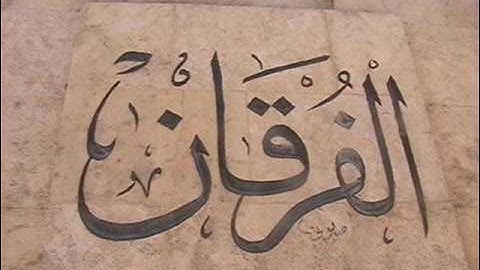 الْفُرْقَان